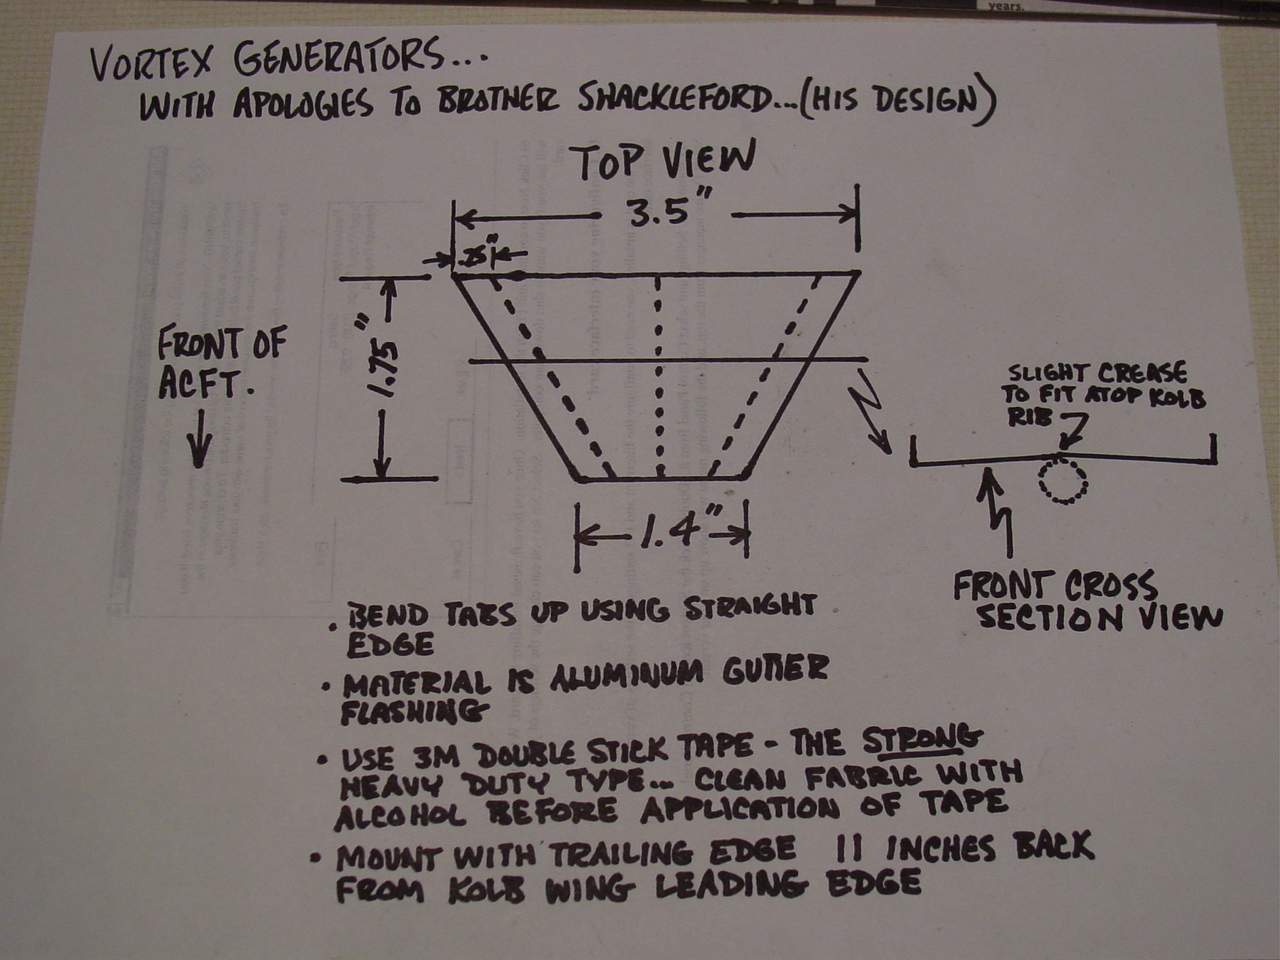 years.
VORTEX GENERATORS...
WITH APOLOGIES TO BROTHER SHACKLEFORD...(HIS DESIGN)
TOP VIEW
3.5"
1.75"
FRONT OF
ACFT.
1.4"
SLIGHT CREASE
TO FIT ATOP KOLB
RIB
FRONT CROSS
SECTION VIEW
• BEND TABS UP USING STRAIGHT
EDGE
• MATERIAL IS ALUMINUM GUTTER
FLASHING
• USE 3M DOUBLE STICK TAPE - THE STRONG
HEAVY DUTY TYPE... CLEAN FABRIC WITH
ALCOHOL BEFORE APPLICATION OF TAPE
• MOUNT WITH TRAILING EDGE 11 INCHES BACK
FROM KOLB WING LEADING EDGE